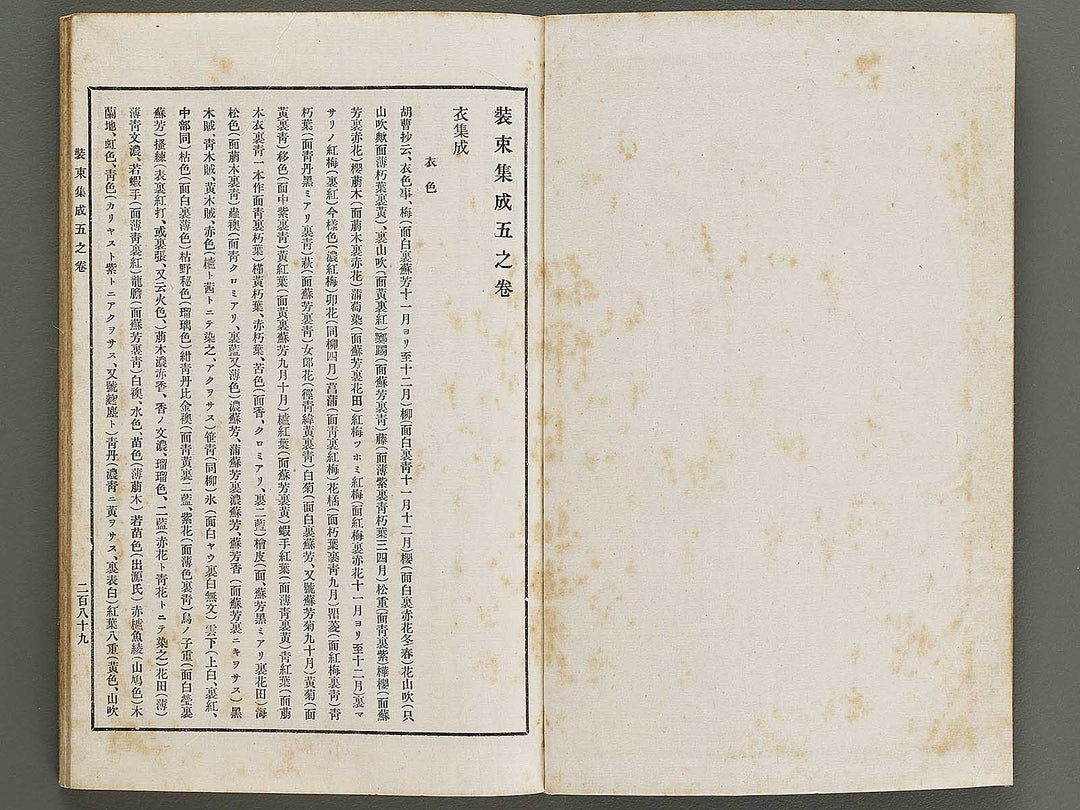 装束集成五之卷
衣集成
衣色
胡曹抄云、衣色事、梅(面白裏蘇芳十一月ヨリ至十二月)柳(面白裏靑十一月十二月)櫻(面白裏赤花冬春)花山吹(只
山吹歟面薄朽葉裏黃)、裏山吹(面黃裏紅)躑躅(面蘇芳裏靑)藤(面薄紫裏靑朽葉三四月)松重(面靑裏紫)樺櫻(面蘇
芳裏赤花)櫻萠木(面萠木裏赤花)蒲萄染(面蘇芳裏花田)紅梅ツホミ紅梅(面紅梅裏赤花十一月ヨリ至十二月)裏マ
サリノ紅梅(裏紅)今樣色(濃紅梅)卯花(同柳四月)菖蒲(面靑裏紅梅)花橘(面朽葉裏靑九月)菱(面紅梅裏靑)靑
朽葉(面靑丹黑ミアリ裏靑)萩(面蘇芳裏靑)女郞花(徑靑緯黃裏靑)白菊(面白裏蘇芳、又號蘇芳菊九十月)黃菊(面
黃裏靑)移色(面中紫裏靑)黃紅葉(面黃裏蘇芳九月十月)櫨紅葉(面蘇芳裏黃)蝦手紅葉(面薄靑裏黃)靑紅葉(面萠
木衣裏靑一本作面靑裏朽葉)槿黃朽葉、赤朽葉、苦色(面香、クロミアリ、裏二藍)檜皮(面、蘇芳黑ミアリ裏花田)海
松色(面萠木裏靑)蟲襖(面靑クロミアリ、裏藍又薄色)濃蘇芳、蒲蘇芳裏濃蘇芳、蘇芳香(面蘇芳裏ニキヲサス)黑
木賊、靑木賊、黃木賊、赤色(櫨ト茜トニテ染之、アクヲサス)笹靑(同柳)氷(面白ヤウ裏白無文)雲下(上白、裏紅、
中部同)枯色(面白裏薄色)枯野秘色(瑠璃色)紺靑丹比金襖(面靑黃裏二藍、紫花(面薄色裏靑)鳥ノ子重(面白瑩裏
蘇芳)搔練(表裏紅打、或裏張、又云火色、)萠木濃赤香、香ノ文濃、瑠瑠色、二藍(赤花ト靑花トニテ染之)花田(薄)
薄靑文濃、若蝦手(面薄靑裏紅)龍膽(面蘇芳裏靑)白襖、水色、苗色(薄萠木)若苗色(出源氏)赤櫨魚綾(山鳩色)木
蘭地、虹色、靑色(カリヤスト紫トニアクヲサス、又號麴塵ト)靑丹(濃靑ニ黃ヲサス、裏表白)紅葉八重(黃色、山吹
装束集成五之卷
二百八十九